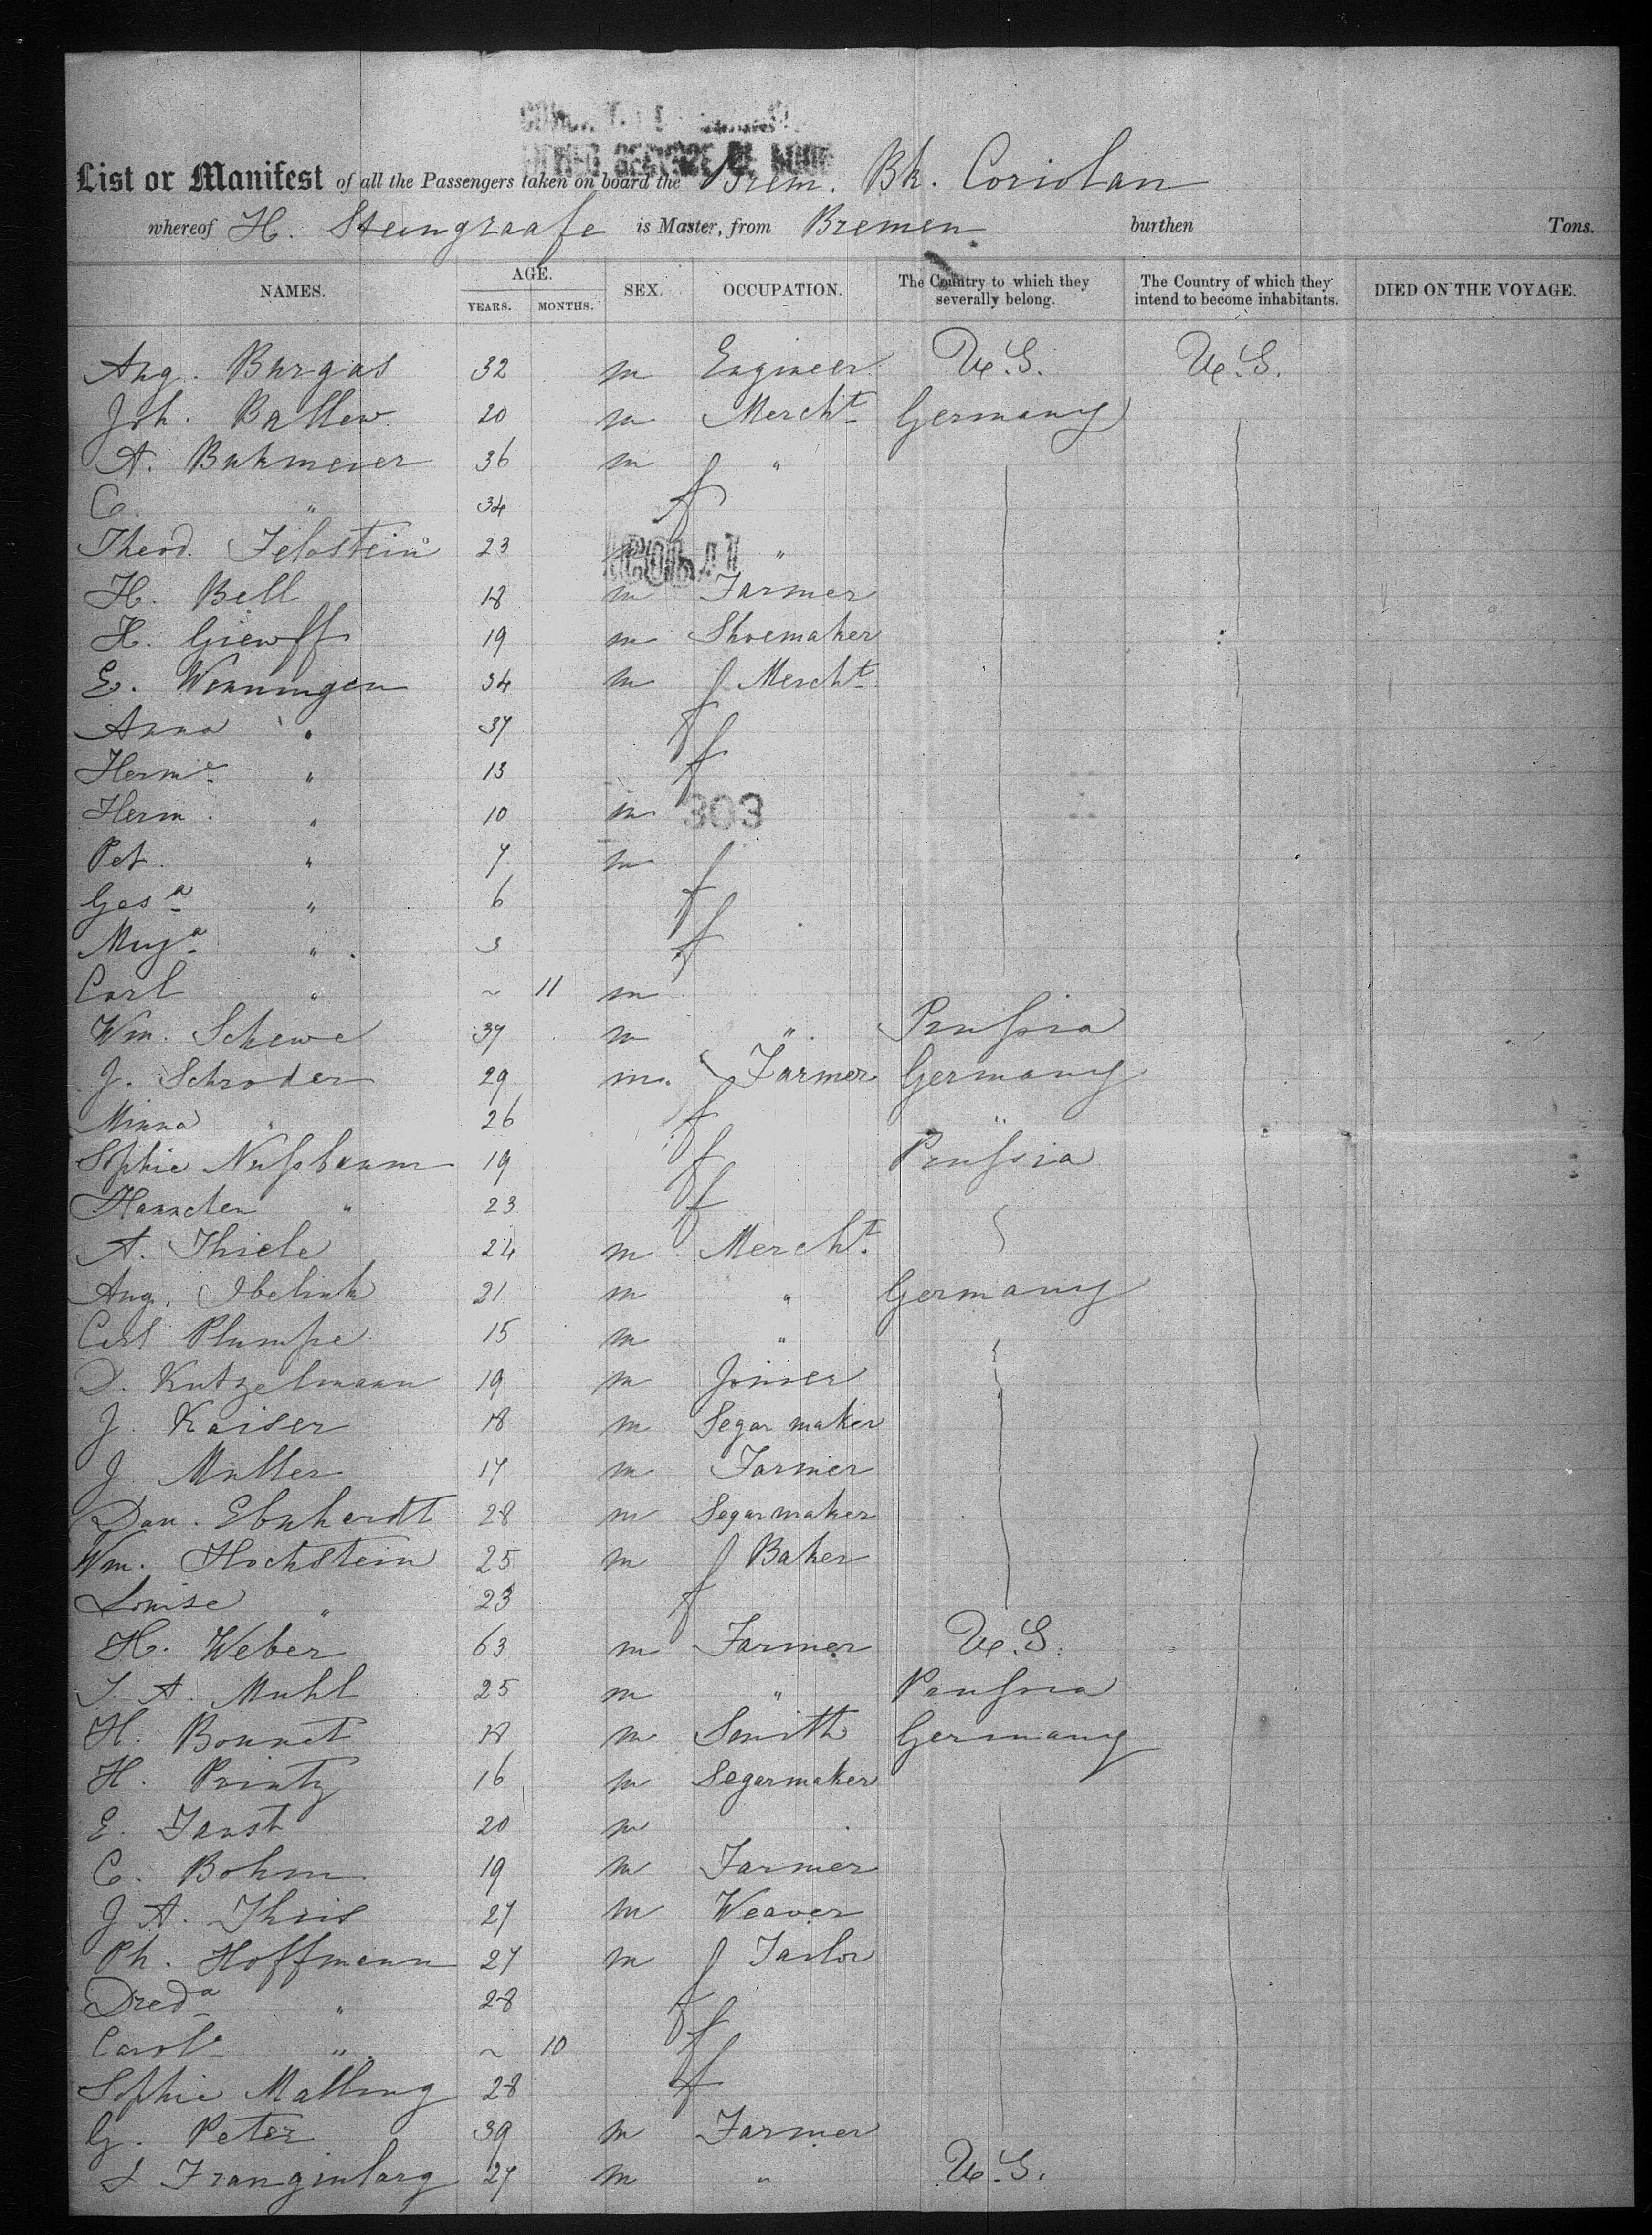 List or Manifest of all the Passengers taken on board the Brem. Bk. Coriolan
whereof H. Steengraafe is Master, from Bremen burthen Tons.
NAMES. AGE. YEARS. MONTHS. SEX. OCCUPATION. The Country to which they severally belong. The Country of which they intend to become inhabitants. DIED ON THE VOYAGE.
Aug. Burgas 32 m Engineer U.S. U.S.
Joh. Ballew 20 m Mercht Germany
A. Buhmeier 36 m "
C. " 34 f
Theod. 23 "
H. Bell 18 m Farmer
H. Giewff 19 m Shoemaker
E. Wenningen 34 m Mercht
Anna " 37 f
Herme " 13 f
Herm. " 10 m 303
Pet. " 7 m
Gesa " 6 f
" 3 f
Carl " ~ 11 m
Wm. Schewe 37 m " Prussia
J. Schroder 29 m. Farmer Germany
Minna " 26 f "
Sophie Nussbaum 19 f Prussia
Hannchen " 23 f
A. Thiele 24 m Mercht
Aug. Ibelink 21 m " Germany
Carl Plumpe 15 m "
D. Kutzelmann 19 m Joiner
J. Kaiser 18 m Segar maker
J. Muller 17 m Farmer
Dan. Ebuhardt 28 m Segarmaker
Wm. Hochstein 25 m Baker
Louise " 23 f
H. Weber 63 m Farmer U.S.
J. A. Muhl 25 m " Prussia
H. Bonnet 18 m Smith Germany
H. Printz 16 m Segarmaker
E. Faust 20 m
C. Bohm 19 m Farmer
J. A. Theis 27 m Weaver
Ph. Hoffmann 27 m Tailor
Dreda " 28 f
Carole " ~ 10 f
Sophie Malling 28 f
G. Peter 39 m Farmer
27 m " U.S.